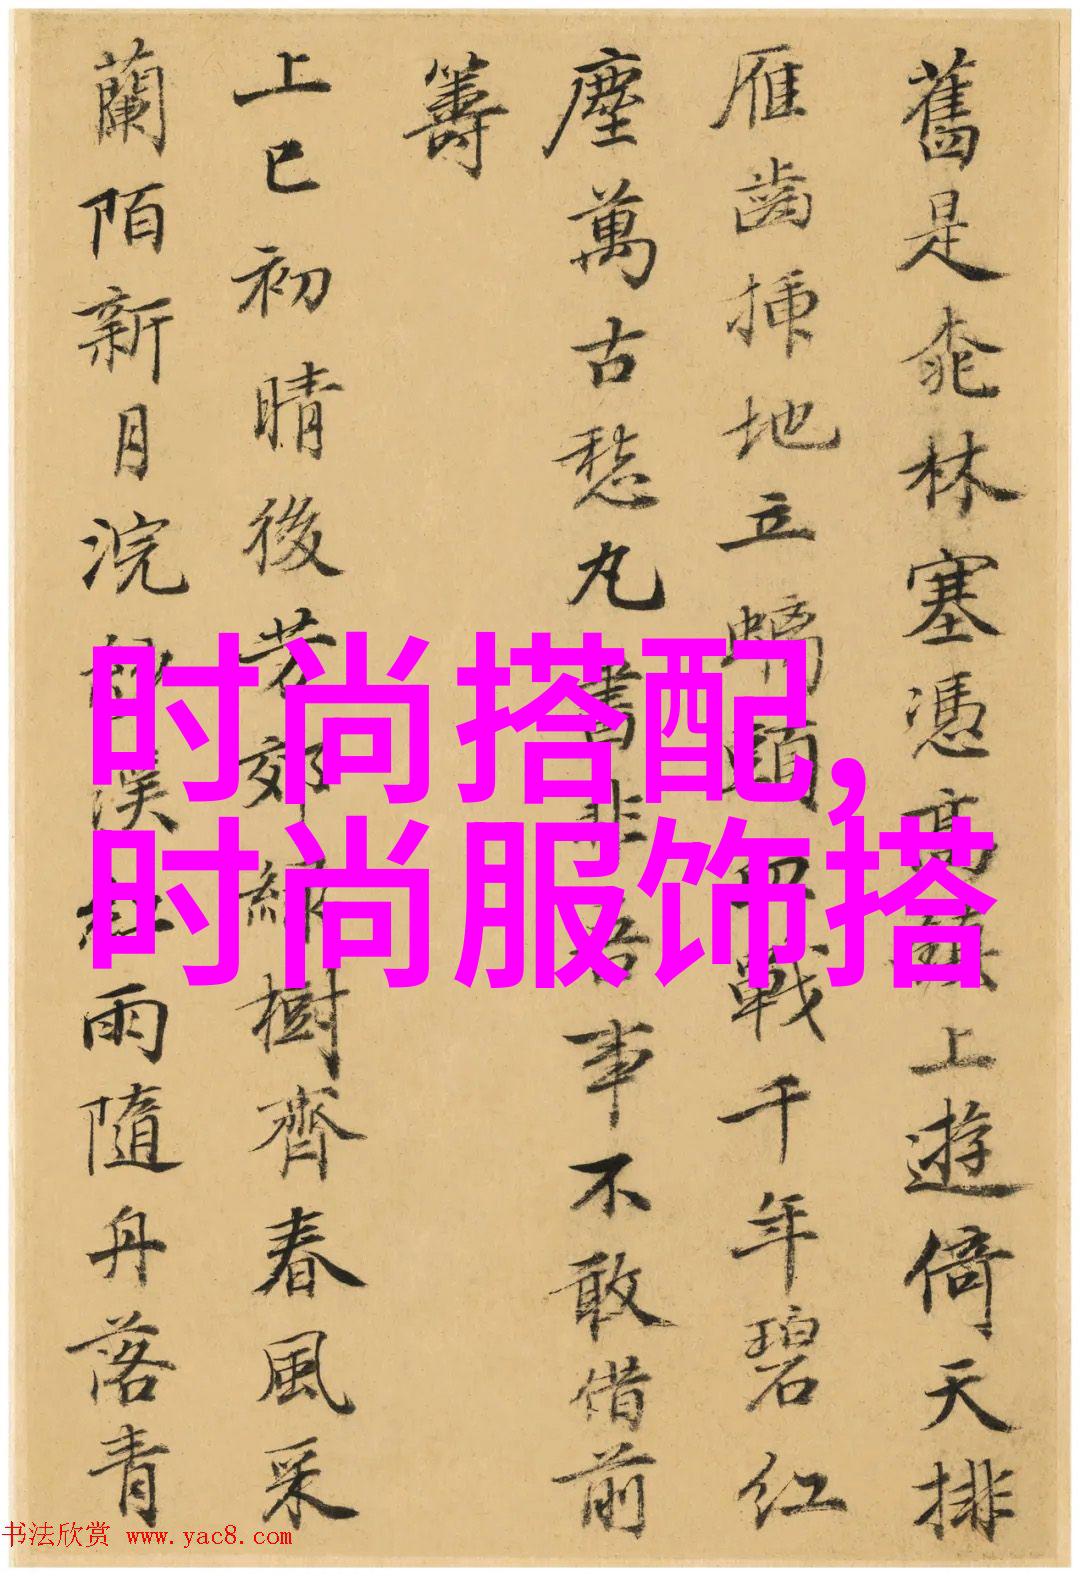 舊是桃林塞憑高上遊倚天排
雁齒插地立螭頭血戰千年碧紅
塵萬古愁丸書非吾事不敢借前
籌
上巳初晴後芳郊綠樹齊春風采
蘭陌新月浣紗溪紅雨隨舟落青
时尚搭配,
时尚服饰搭
书法欣赏 www.yac8.com